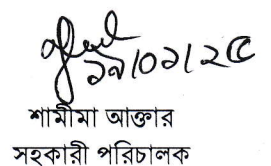 ১৯/০১/২৫
শামীমা আক্তার
সহকারী পরিচালক